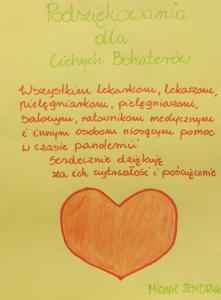 Podziękowania
dla
Cichych Bohaterów
Wszystkim lekarkom, lekarzom,
pielęgniarkom, pielęgniarzom,
salowym, ratownikom medycznym
i innym osobom niosącym pomoc
w czasie pandemii
Serdecznie dziękuję
za ich wytrwałość i poświęcenie
MICHAŁ